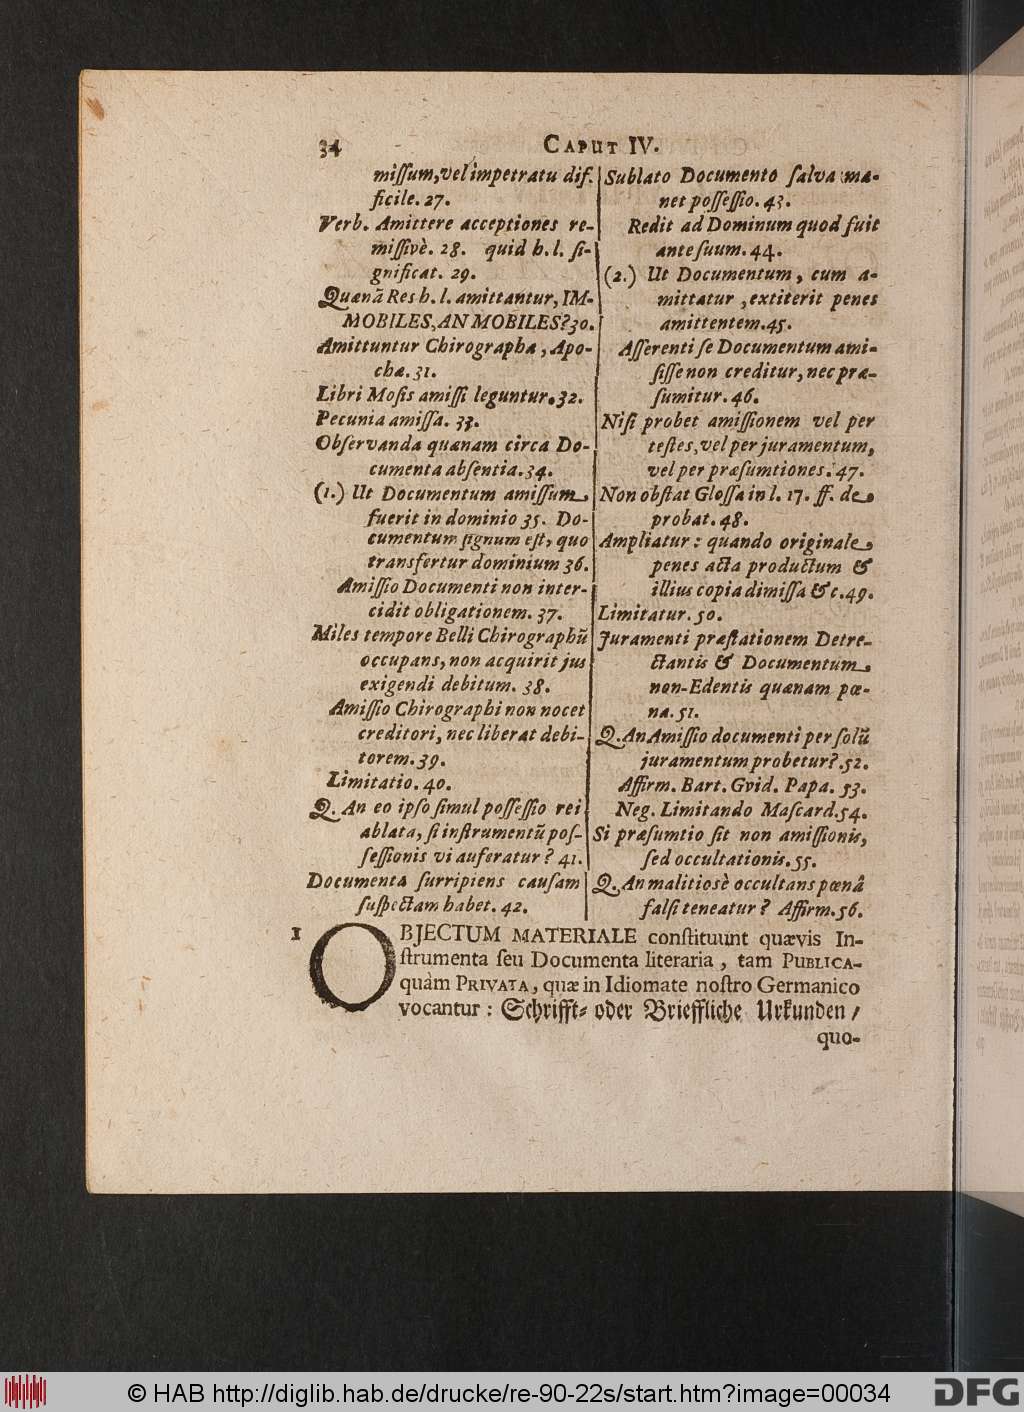 34
CAPUT IV.
miſſum, vel impetratu dif-
ficile. 27.
Verb. Amittere acceptiones re-
miſſivè. 28. quid h. l. ſi-
gnificat. 29.
Quænã Res h. l. amittantur, IM-
MOBILES, AN MOBILES? 30.
Amittuntur Chirographa, Apo-
cha. 31.
Libri Moſis amiſſi leguntur. 32.
Pecunia amiſſa. 33.
Obſervanda quænam circa Do-
cumenta abſentia. 34.
(1.) Ut Documentum amiſſum
fuerit in dominio 35. Do-
cumentum ſignum eſt, quo
transfertur dominium 36.
Amiſſio Documenti non inter-
cidit obligationem. 37.
Miles tempore Belli Chirographũ
occupans, non acquirit jus
exigendi debitum. 38.
Amiſſio Chirographi non nocet
creditori, nec liberat debi-
torem. 39.
Limitatio. 40.
Q. An eo ipſo ſimul poſſeſſio rei
ablata, ſi inſtrumentũ poſ-
ſeſſionis vi auferatur? 41.
Documenta ſurripiens cauſam
ſuſpectam habet. 42.
Sublato Documento ſalva ma-
net poſſeſſio. 43.
Redit ad Dominum quod fuit
ante ſuum. 44.
(2.) Ut Documentum, cum a-
mittatur, extiterit penes
amittentem. 45.
Aſſerenti ſe Documentum ami-
ſiſſe non creditur, nec præ-
ſumitur. 46.
Niſi probet amiſſionem vel per
teſtes, vel per juramentum,
vel per præſumtiones. 47.
Non obſtat Gloſſa in l. 17. ff. de
probat. 48.
Ampliatur: quando originale
penes acta productum &
illius copia dimiſſa &c. 49.
Limitatur. 50.
Juramenti præſtationem Detre-
ctantis & Documentum
non-Edentis quænam pœ-
na. 51.
Q. An Amiſſio documenti per ſolũ
juramentum probetur? 52.
Affirm. Bart. Gvid. Papa. 53.
Neg. Limitando Maſcard. 54.
Si præſumtio ſit non amiſſionis,
ſed occultationis. 55.
Q. An malitiosè occultans pœnâ
falſi teneatur? Affirm. 56.
1 OBJECTUM MATERIALE conſtituunt quævis In-
ſtrumenta ſeu Documenta literaria, tam PUBLICA-
quàm PRIVATA, quæ in Idiomate noſtro Germanico
vocantur: Schrifft- oder Brieffliche Urkunden /
quo-
© HAB http://diglib.hab.de/drucke/re-90-22s/start.htm?image=00034
DFG